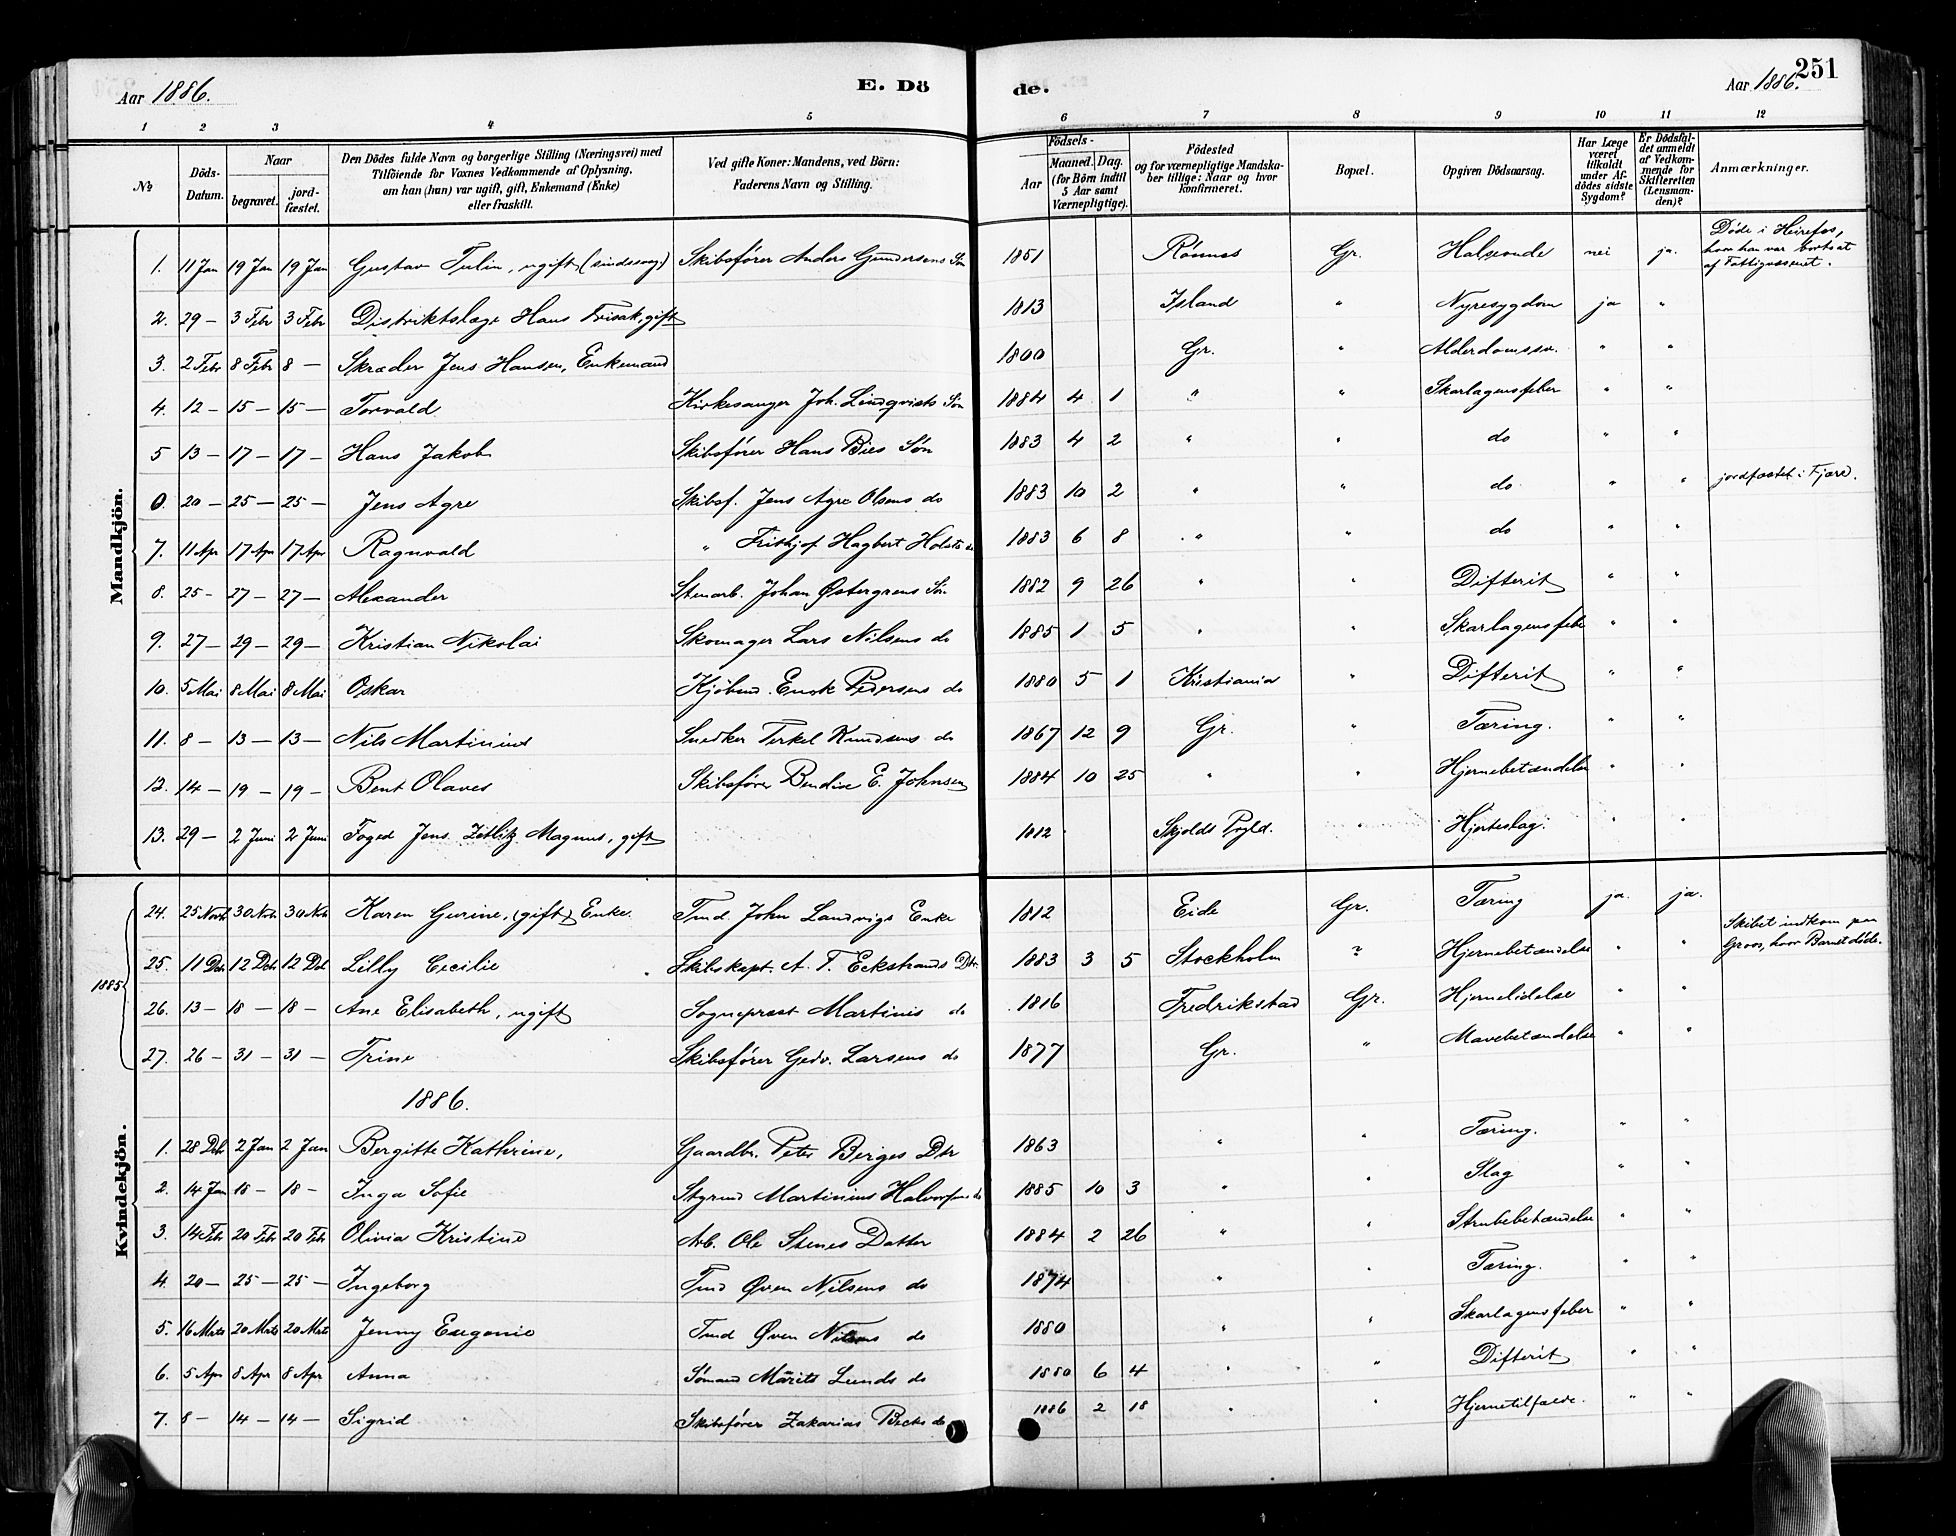 Aar 1886.
E. Dö
de.
Aar 1886.
251
1 2 3 4 5 6 7 8 9 10 11 12
№
Döds-Datum.
Naar
begravet.
jord-fæstet.
Den Dödes fulde Navn og borgerlige Stilling (Næringsvei) med
Tilföiende for Voxnes Vedkommende af Oplysning,
om han (hun) var ugift, gift, Enkemand (Enke)
eller fraskilt.
Ved gifte Koner: Mandens, ved Börn:
Faderens Navn og Stilling.
Födsels-
Aar
Maaned. Dag.
(for Börn indtil
5 Aar samt
Værnepligtige).
Födested
og for værnepligtige Mandska-
ber tillige: Naar og hvor
konfirmeret.
Bopæl.
Opgiven Dödsaarsag.
Har Læge
været
tilkaldt
under Af-
dödes sidste
Sygdom?
Er Dödsfal-
det anmeldt
af Vedkom-
mende for
Skifteretten
(Lensman-
den)?
Anmærkninger.
Mandkjön.
1. 11 Jan 19 Jan 19 Jan Gustav Tulin, ugift (sindssvag) Skibsfører Anders Gundersens Søn 1851 Rønnes Gr. Halsonde nei ja. Døde i Heirefos, hvor han var bortsat af Fattigvæsenet.
2. 29 — 3 Febr 3 Febr Distriktslæge Hans Frisak, gift 1813 Island " Nyresygdom ja "
3. 2 Febr 8 Febr 8 — Skræder Jens Hansen, Enkemand 1800 Gr. " Alderdomssv. " "
4. 12 — 15 — 15 — Torvald Kirkesanger Joh. Lindqvists Søn 1884 4 1 " " Skarlagensfeber " "
5 13 — 17 — 17 — Hans Jakob Skibsfører Hans Bies Søn 1883 4 2 " " do " "
6. 20 — 25 — 25 — Jens Agre Skibsf. Jens Agre Olsens do 1883 10 2 " " do " " jordfæstet i Fjære.
7. 11 Apr 17 Apr 17 Apr Ragnvald " Frithjof Hagbert Holsts do 1883 6 8 " " do " "
8. 25 - 27 — 27 — Alexander Stenarb. Johan Østergrens Søn 1882 9 26 " " Difterit " "
9. 27 — 29 — 29 — Kristian Nikolai Skomager Lars Nilsens do 1885 1 5 " " Skarlagensfeber " "
10. 5 Mai 8 Mai 8 Mai Oskar Kjøbmd. Pedersens do 1880 5 1 Kristiania " Difterit " "
11. 8 — 13 — 13 — Nils Martinius Snedker Terkel Knudsens do 1867 12 9 Gr. " Tæring. " "
12. 14 — 19 — 19 — Bent Olaves Skibsfører Bendix E. Johnsen 1884 10 25 " " Hjernebetændelse " "
13. 29 — 2 Juni 2 Juni Foged Jens Zetlitz Magnus, gift 1812 Skjolds Prgld. " Hjerteslag. " "
Kvindekjön.
1885
24. 25 Novb 30 Nvb 30 Nvb Karen Gurine, (gift) Enke. Tmd. John Landvigs Enke 1812 Eide Gr. Tæring ja. ja.
25. 11 Dcb 12 Dcb 12 Dcb Lilly Cecilie Skibskapt. A. T. Eckstrands Dtr. 1883 3 5 Stockholm ? Hjernebetændelse " " Skibet indkom paa Groos, hvor Barnet døde.
26. 13 — 18 — 18 — Ane Elisabeth, ugift Sogneprest Martinis do 1816 Fredrikstad Gr. Hjernelidelse " "
27. 26 — 31 — 31 — Trine Skibsfører Gedv. Larsens do 1877 Gr. " Mavebetændelse " "
1886.
1. 28 Dcb 2 Jan 2 Jan Bergitte Kathrine, Gaardbr. Peter Berges Dtr 1863 " " Tæring. " "
2. 14 Jan 18 — 18 — Inga Sofie Styrmd Martinius Halvorsens do 1885 10 3 " " Slag " "
3. 14 Febr 20 Febr 20 Febr Olivia Kristine Arb. Ole Stenes Datter 1884 2 26 " " Strubebetændelse " "
4. 20 — 25 — 25 — Ingeborg Tmd Øven Nilsens do 1874 " " Tæring. " "
5. 16 Mrts 20 Mrts 20 Mrts Jenny Eugenie Tmd Øven Nilsens do 1880 " " Skarlagensfeber " "
6. 5 Apr 8 Apr 8 Apr Anna Sømand Märits Lunds do 1880 6 4 " " Difterit " "
7. 8 — 14 — 14 — Sigrid Skibsfører Zakarias Becks do 1886 2 18 " " Hjernetilfælde. " "